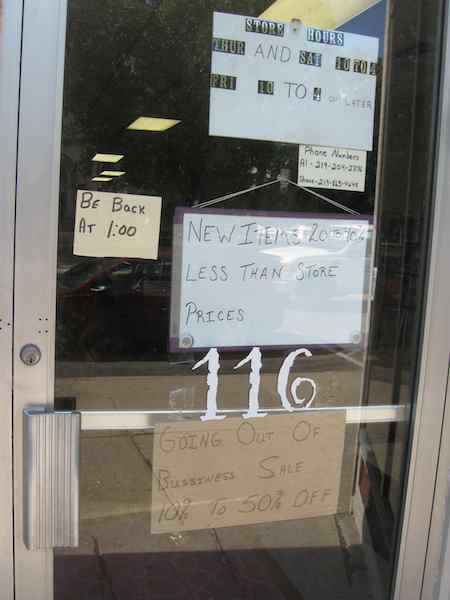 STORE HOURS
THUR AND SAT 10 TO 4
FRI 10 TO 4 OR LATER
Phone Numbers
Al - 219-204-
BE BACK
AT 1:00
NEW ITEMS 20 TO
LESS THAN STORE
PRICES
116
GOING OUT OF
BUSSINESS SALE
10% TO 50% OFF